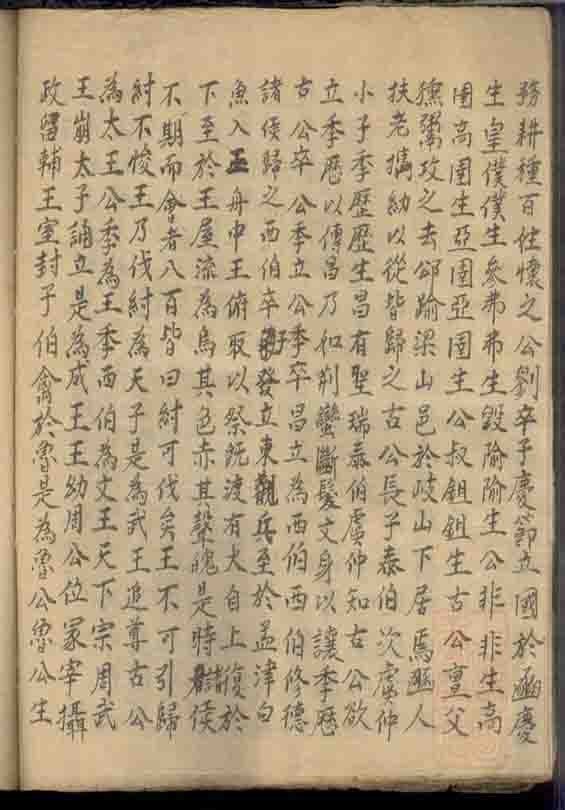 務耕種百姓懷之公劉卒子慶節立國於豳慶
生皇僕僕生參弗弗生毀隃隃生公非非生高
圉高圉生亞圉亞圉生公叔鉏鉏生古公亶父
獯鬻攻之去邠踰梁山邑於岐山下居焉豳人
扶老攜幼以從皆歸之古公長子泰伯次虞仲
小子季歷歷生昌有聖瑞泰伯虞仲知古公欲
立季歷以傳昌乃如荆蠻斷髮文身以讓季歷
古公卒公季立公季卒昌立為西伯西伯修德
諸侯歸之西伯卒子發立東觀兵至於孟津白
魚入王舟中王俯取以祭既渡有火自上復於
下至於王屋流為烏其色赤其聲魄是時諸侯
不期而會者八百皆曰紂可伐矣王不可引歸
紂不悛王乃伐紂為天子是為武王追尊古公
為太王公季為王季西伯為文王天下宗周武
王崩太子誦立是為成王王幼周公位冢宰攝
政留輔王室封子伯禽於魯是為魯公魯公生